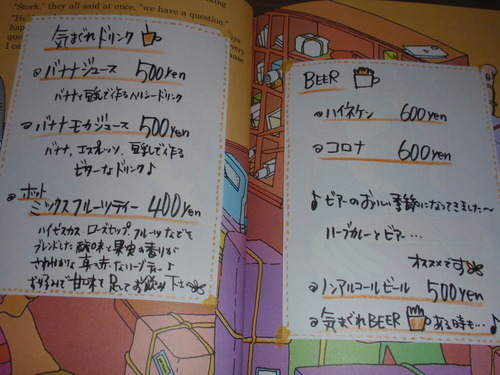 "Stork," they all said at once, "we have a question."
気まぐれドリンク
バナナジュース 500yen
バナナと豆乳で作るヘルシードリンク
バナナモカジュース 500yen
バナナ、エスプレッソ、豆乳で作る
ビターなドリンク♪
ホット
ミックスフルーツティー 400yen
ハイビスカス ローズヒップ、フルーツなどを
ブレンドした酸味と果実の香りが
さわやかな真っ赤なハーブティー♪
お好みで甘味を足してお飲み下さい
BEER
ハイネケン 600yen
コロナ 600yen
♪ビアーのおいしい季節になってきました〜
ハーブカレーとビアー…
オススメです
ノンアルコールビール 500yen
気まぐれBEER ある時も…♪